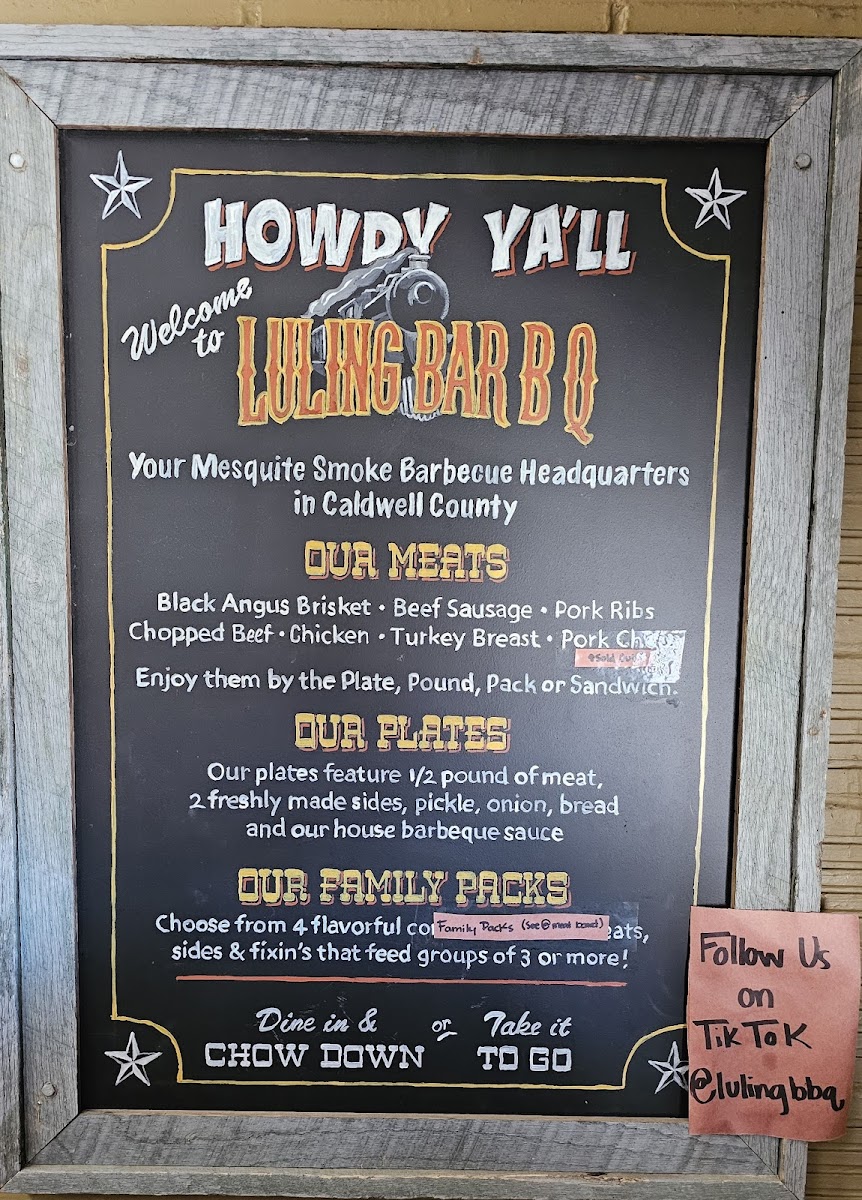 HOWDY YA'LL
Welcome
to
LULING BAR B Q
Your Mesquite Smoke Barbecue Headquarters
in Caldwell County
OUR MEATS
Black Angus Brisket • Beef Sausage • Pork Ribs
Chopped Beef • Chicken • Turkey Breast • Pork
Sold
Enjoy them by the Plate, Pound, Pack or Sandwich.
OUR PLATES
Our plates feature 1/2 pound of meat,
2 freshly made sides, pickle, onion, bread
and our house barbeque sauce
OUR FAMILY PACKS
Choose from 4 flavorful
Family Packs (See @ meat
sides & fixin's that feed groups of 3 or more!
Dine in & or Take it
CHOW DOWN TO GO
Follow Us
on
TikTok
@lulingbbq